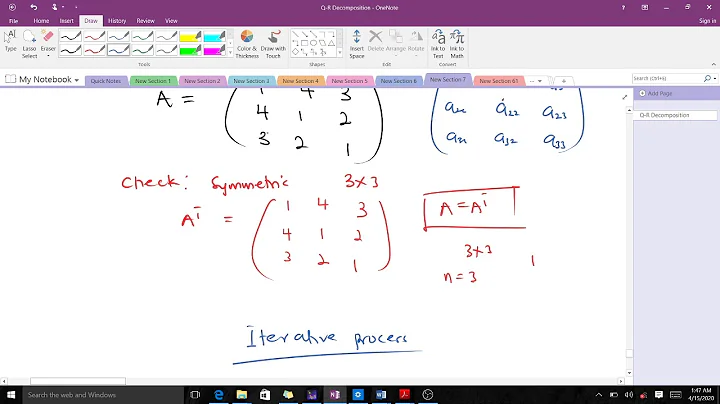 Q-R Decomposition - OneNote
File Home Insert Draw History Review View
Type Lasso Select Eraser
Color & Thickness Draw with Touch
Insert Space Arrange Delete Rotate
Ink to Text Ink to Math
Tools Shapes Edit Convert
My Notebook Quick Notes New Section 1 New Section 2 New Section 3 New Section 4 New Section 5 New Section 6 New Section 7 New Section 61
Search (Ctrl+E)
Add Page
Q-R Decomposition
1 4 3
A = 4 1 2 a22 a23
3 2 1 a32 a33
Check: Symmetric 3x3
1 4 3
A^T = 4 1 2
3 2 1
A = A^T
3x3
n = 3
Iterative process
Search the web and Windows
1:47 AM
4/15/2020